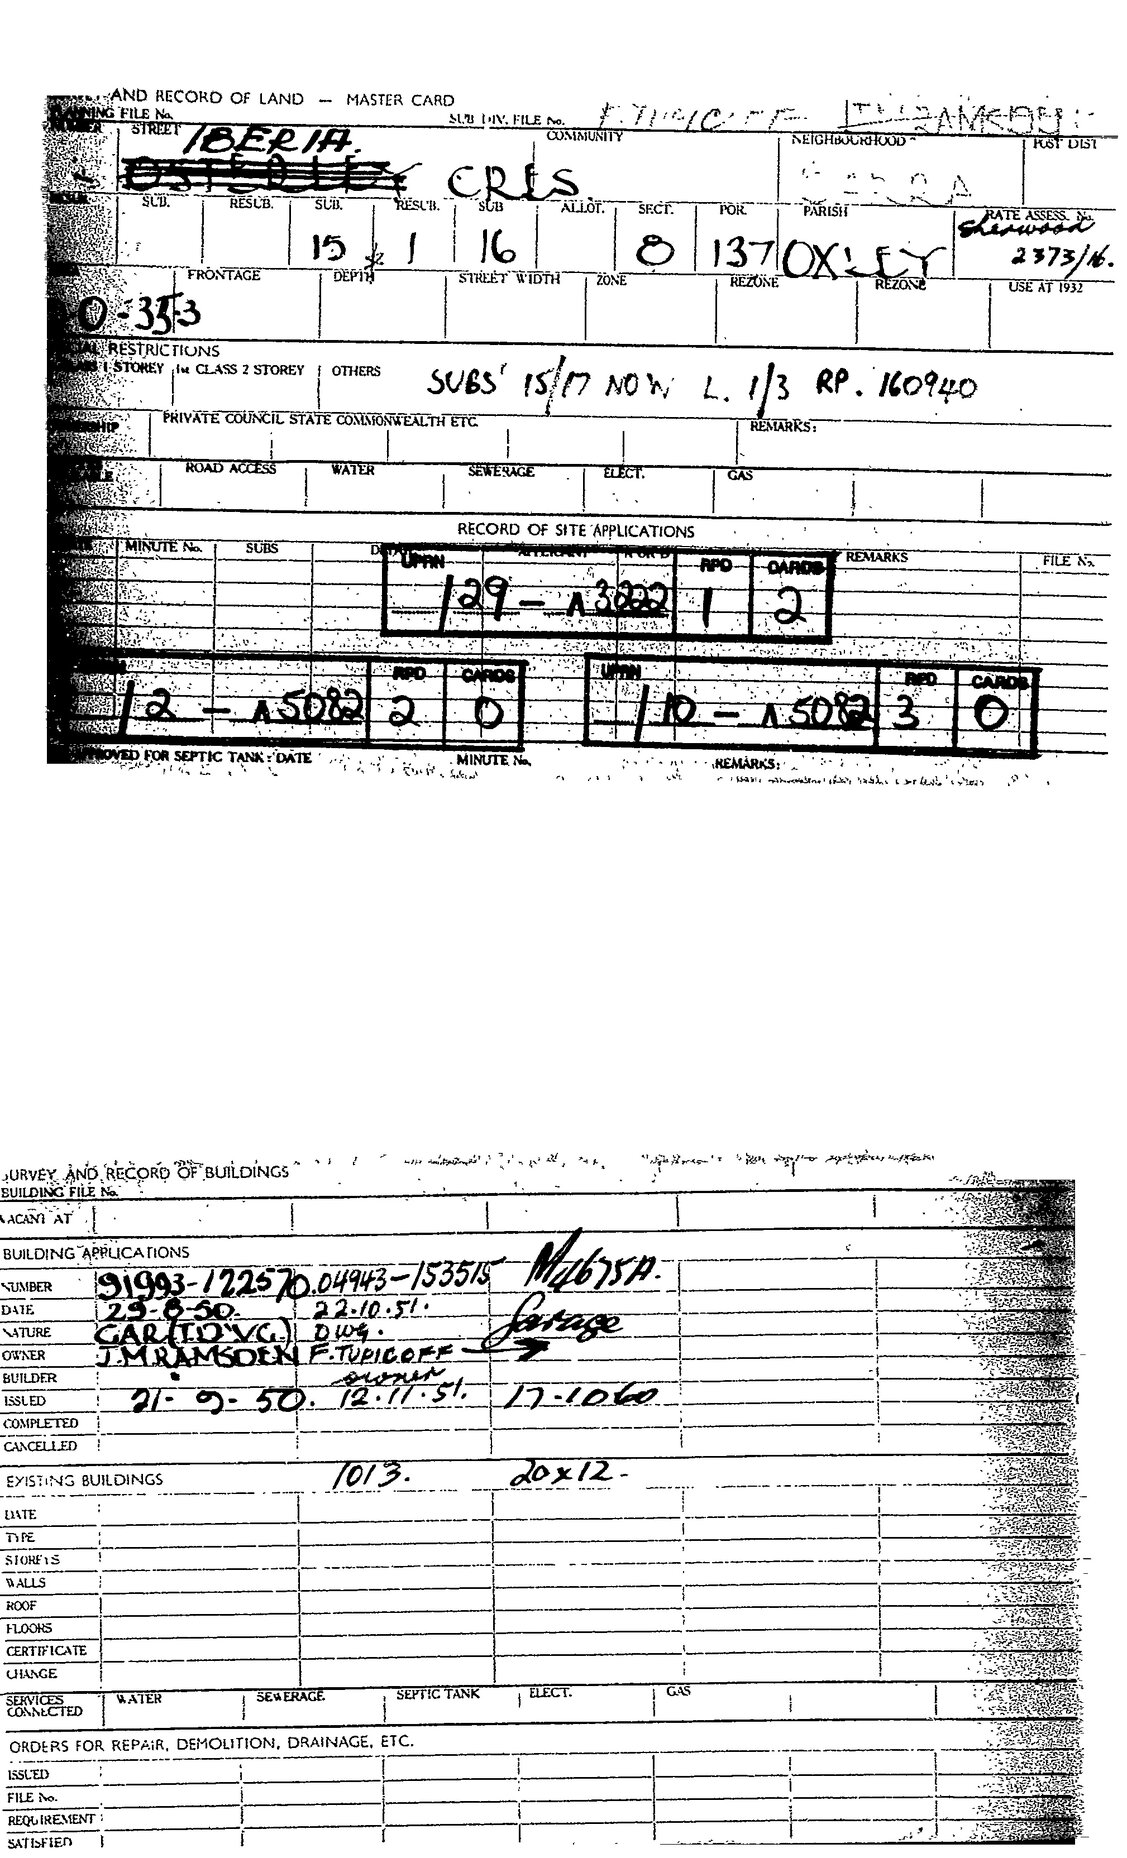 AND RECORD OF LAND — MASTER CARD
PLANNING FILE No. SUB DIV. FILE No. F. TUPICOFF J.M. RAMSDEN
NUMBER STREET COMMUNITY NEIGHBOURHOOD POST DIST
IBERIA.
CRES
SUB. RESUB. SUB. RESUB. SUB ALLOT. SECT. POR. PARISH RATE ASSESS. No.
15 1 16 8 137 OXLEY Sherwood
2373/16.
FRONTAGE DEPTH STREET WIDTH ZONE REZONE REZONE USE AT 1932
0-35·3
RESTRICTIONS
1 STOREY 1st CLASS 2 STOREY OTHERS SUBS' 15/17 NOW L. 1/3 RP. 160940
PRIVATE COUNCIL STATE COMMONWEALTH ETC. REMARKS:
ROAD ACCESS WATER SEWERAGE ELECT. GAS
RECORD OF SITE APPLICATIONS
MINUTE No. SUBS APPLICANT REMARKS FILE No.
UPRN RPD CARDS
/ 29 — A 3222 1 2
RPD CARDS UPRN RPD CARDS
/ 2 — A 5082 2 0 / 10 — A 5082 3 0
APPROVED FOR SEPTIC TANK: DATE MINUTE No. REMARKS:
SURVEY AND RECORD OF BUILDINGS
BUILDING FILE No.
VACANT AT
BUILDING APPLICATIONS
NUMBER 91993-122570. 04943-153515 M4675A.
DATE 29-8-50. 22.10.51.
NATURE GAR(T.DWG.) DWG. Garage
OWNER J.M.RAMSDEN F.TUPICOFF
BUILDER owner
ISSUED 21-9-50. 12.11.51. 17-10 60
COMPLETED
CANCELLED
EXISTING BUILDINGS 1013. 20x12.
DATE
TYPE
STOREYS
WALLS
ROOF
FLOORS
CERTIFICATE
CHANGE
SERVICES CONNECTED WATER SEWERAGE SEPTIC TANK ELECT. GAS
ORDERS FOR REPAIR, DEMOLITION, DRAINAGE, ETC.
ISSUED
FILE No.
REQUIREMENT
SATISFIED